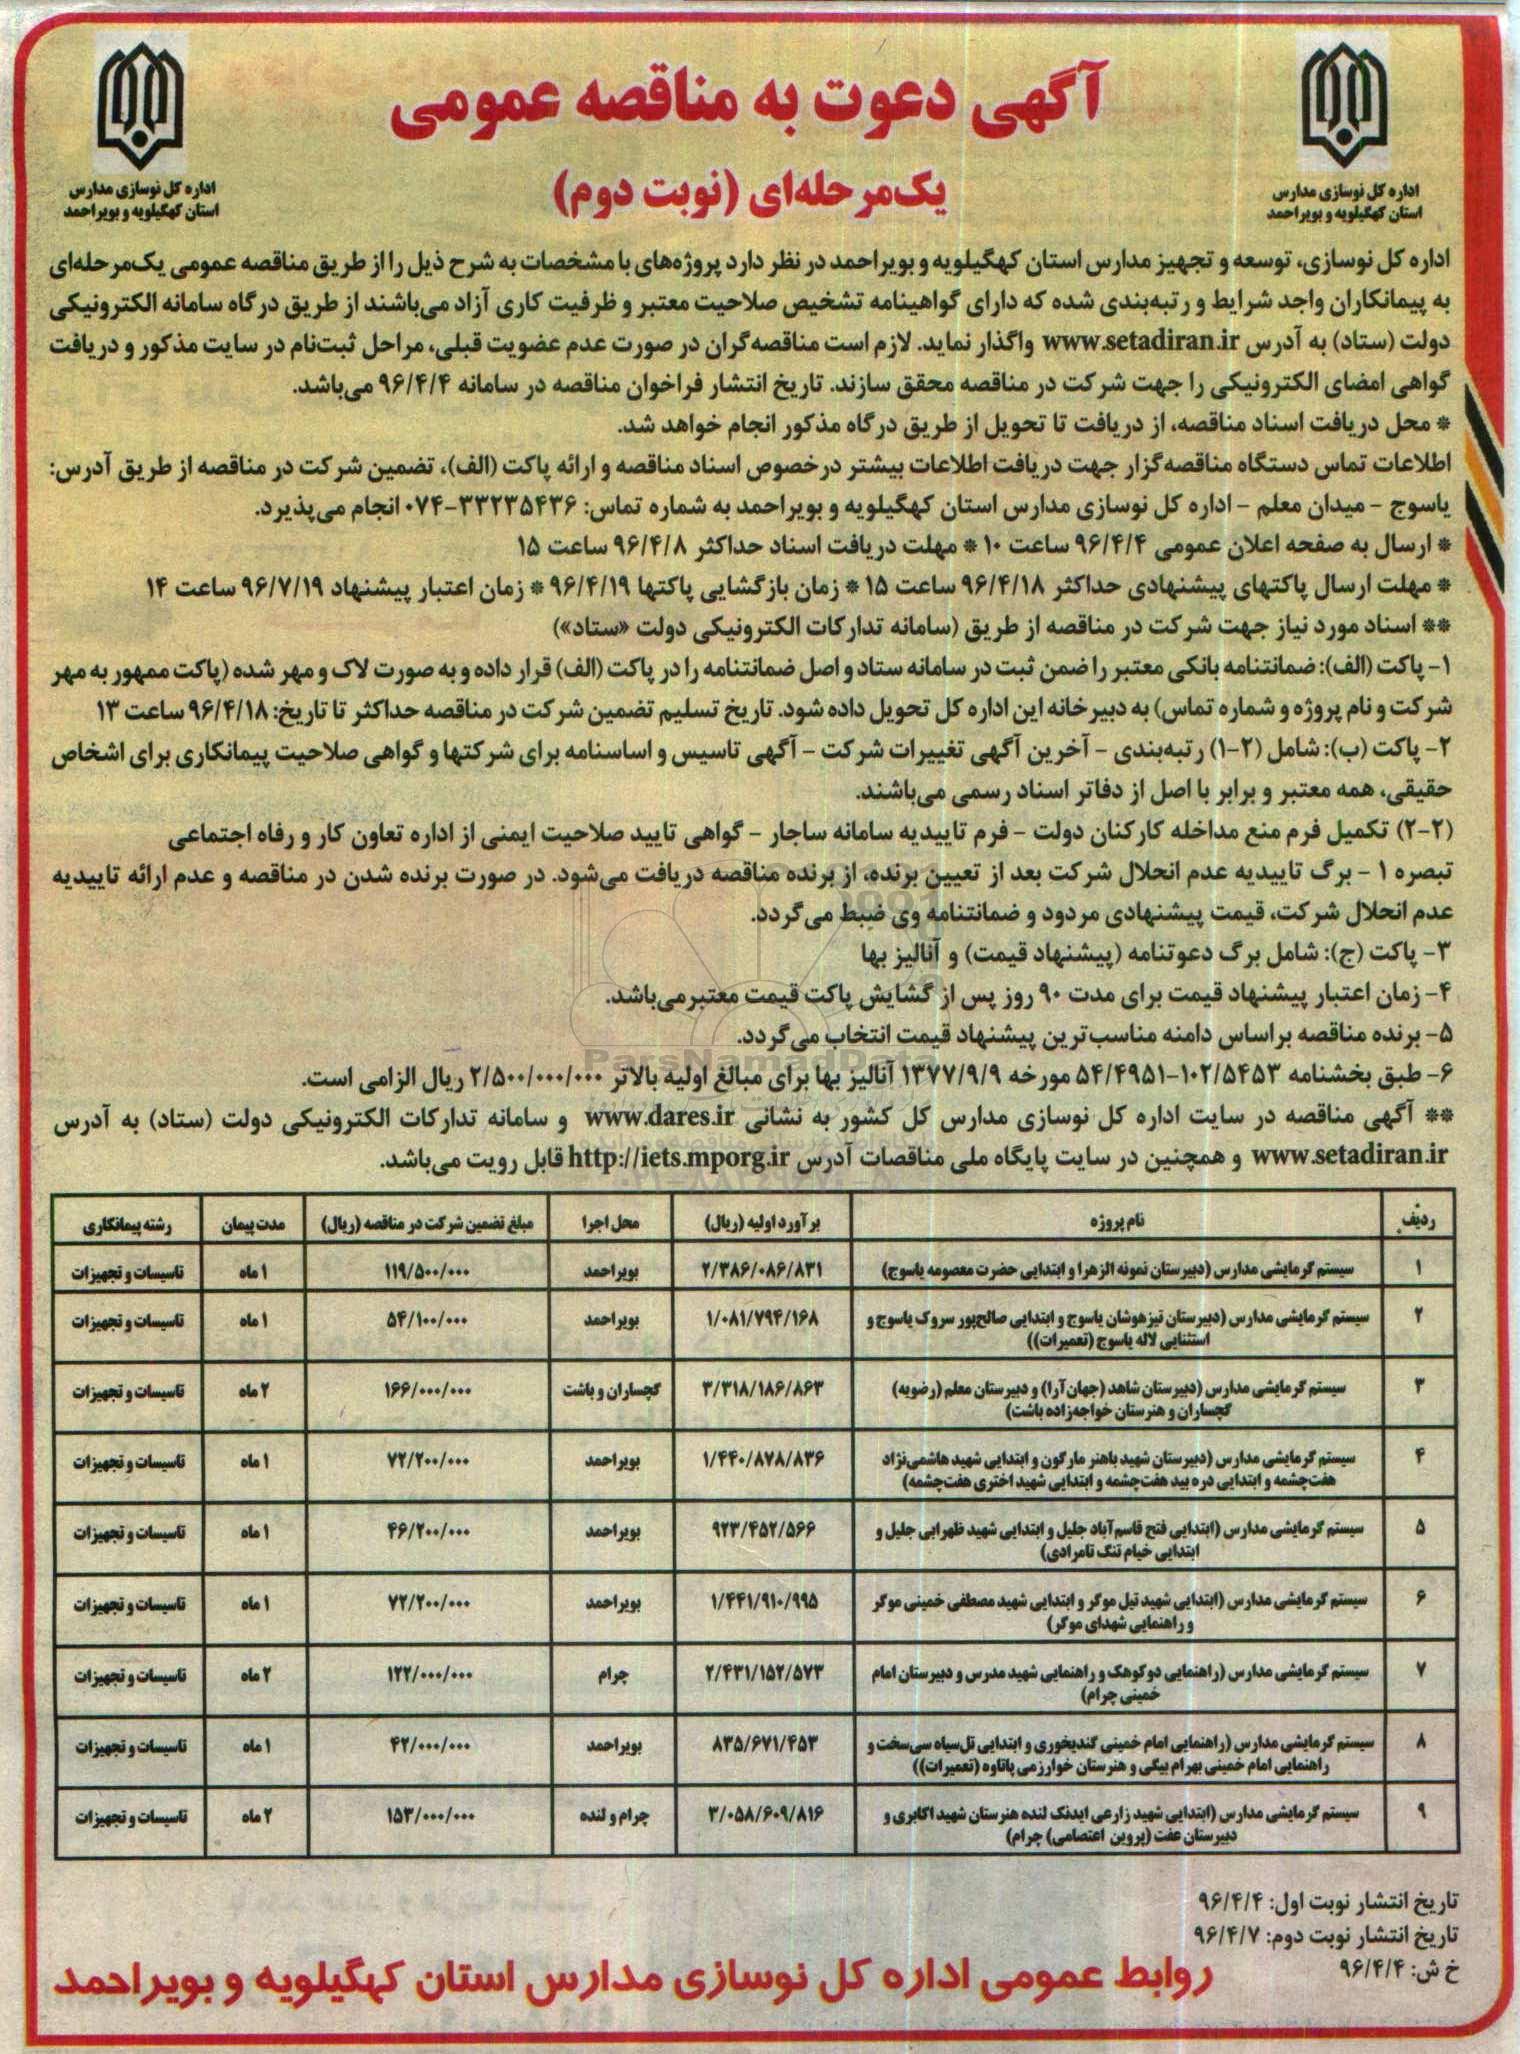 آگهی دعوت به مناقصه عمومی
یک‌مرحله‌ای (نوبت دوم)
اداره کل نوسازی مدارس
استان کهگیلویه و بویراحمد
اداره کل نوسازی مدارس
استان کهگیلویه و بویراحمد
اداره کل نوسازی، توسعه و تجهیز مدارس استان کهگیلویه و بویراحمد در نظر دارد پروژه‌های با مشخصات به شرح ذیل را از طریق مناقصه عمومی یک‌مرحله‌ای
به پیمانکاران واجد شرایط و رتبه‌بندی شده که دارای گواهینامه تشخیص صلاحیت معتبر و ظرفیت کاری آزاد می‌باشند از طریق درگاه سامانه الکترونیکی
دولت (ستاد) به آدرس www.setadiran.ir واگذار نماید. لازم است مناقصه‌گران در صورت عدم عضویت قبلی، مراحل ثبت‌نام در سایت مذکور و دریافت
گواهی امضای الکترونیکی را جهت شرکت در مناقصه محقق سازند. تاریخ انتشار فراخوان مناقصه در سامانه ۹۶/۴/۴ می‌باشد.
* محل دریافت اسناد مناقصه، از دریافت تا تحویل از طریق درگاه مذکور انجام خواهد شد.
اطلاعات تماس دستگاه مناقصه‌گزار جهت دریافت اطلاعات بیشتر درخصوص اسناد مناقصه و ارائه پاکت (الف)، تضمین شرکت در مناقصه از طریق آدرس:
یاسوج - میدان معلم - اداره کل نوسازی مدارس استان کهگیلویه و بویراحمد به شماره تماس: ۳۳۲۳۵۴۳۶-۰۷۴ انجام می‌پذیرد.
* ارسال به صفحه اعلان عمومی ۹۶/۴/۴ ساعت ۱۰ * مهلت دریافت اسناد حداکثر ۹۶/۴/۸ ساعت ۱۵
* مهلت ارسال پاکتهای پیشنهادی حداکثر ۹۶/۴/۱۸ ساعت ۱۵ * زمان بازگشایی پاکتها ۹۶/۴/۱۹ * زمان اعتبار پیشنهاد ۹۶/۷/۱۹ ساعت ۱۴
** اسناد مورد نیاز جهت شرکت در مناقصه از طریق (سامانه تدارکات الکترونیکی دولت «ستاد»)
۱- پاکت (الف): ضمانتنامه بانکی معتبر را ضمن ثبت در سامانه ستاد و اصل ضمانتنامه را در پاکت (الف) قرار داده و به صورت لاک و مهر شده (پاکت ممهور به مهر
شرکت و نام پروژه و شماره تماس) به دبیرخانه این اداره کل تحویل داده شود. تاریخ تسلیم تضمین شرکت در مناقصه حداکثر تا تاریخ: ۹۶/۴/۱۸ ساعت ۱۳
۲- پاکت (ب): شامل (۲-۱) رتبه‌بندی - آخرین آگهی تغییرات شرکت - آگهی تاسیس و اساسنامه برای شرکتها و گواهی صلاحیت پیمانکاری برای اشخاص
حقیقی، همه معتبر و برابر با اصل از دفاتر اسناد رسمی می‌باشند.
(۲-۲) تکمیل فرم منع مداخله کارکنان دولت - فرم تاییدیه سامانه ساجار - گواهی تایید صلاحیت ایمنی از اداره تعاون کار و رفاه اجتماعی
تبصره ۱ - برگ تاییدیه عدم انحلال شرکت بعد از تعیین برنده، از برنده مناقصه دریافت می‌شود. در صورت برنده شدن در مناقصه و عدم ارائه تاییدیه
عدم انحلال شرکت، قیمت پیشنهادی مردود و ضمانتنامه وی ضبط می‌گردد.
۳- پاکت (ج): شامل برگ دعوتنامه (پیشنهاد قیمت) و آنالیز بها
۴- زمان اعتبار پیشنهاد قیمت برای مدت ۹۰ روز پس از گشایش پاکت قیمت معتبرمی‌باشد.
۵- برنده مناقصه براساس دامنه مناسب‌ترین پیشنهاد قیمت انتخاب می‌گردد.
ParsNamadData
۶- طبق بخشنامه ۱۰۲/۵۴۵۳-۵۴/۴۹۵۱ مورخه ۱۳۷۷/۹/۹ آنالیز بها برای مبالغ اولیه بالاتر ۲/۵۰۰/۰۰۰/۰۰۰ ریال الزامی است.
** آگهی مناقصه در سایت اداره کل نوسازی مدارس کل کشور به نشانی www.dares.ir و سامانه تدارکات الکترونیکی دولت (ستاد) به آدرس
www.setadiran.ir و همچنین در سایت پایگاه ملی مناقصات آدرس http://iets.mporg.ir قابل رویت می‌باشد.
ردیف نام پروژه برآورد اولیه (ریال) محل اجرا مبلغ تضمین شرکت در مناقصه (ریال) مدت پیمان رشته پیمانکاری
۱ سیستم گرمایشی مدارس (دبیرستان نمونه الزهرا و ابتدایی حضرت معصومه یاسوج) ۲/۳۸۶/۰۸۶/۸۳۱ بویراحمد ۱۱۹/۵۰۰/۰۰۰ ۱ ماه تاسیسات و تجهیزات
۲ سیستم گرمایشی مدارس (دبیرستان تیزهوشان یاسوج و ابتدایی صالح‌پور سروک یاسوج و ۱/۰۸۱/۷۹۴/۱۶۸ بویراحمد ۵۴/۱۰۰/۰۰۰ ۱ ماه تاسیسات و تجهیزات
استثنایی لاله یاسوج (تعمیرات))
۳ سیستم گرمایشی مدارس (دبیرستان شاهد (جهان‌آرا) و دبیرستان معلم (رضویه) ۳/۳۱۸/۱۸۶/۸۶۳ گچساران و باشت ۱۶۶/۰۰۰/۰۰۰ ۲ ماه تاسیسات و تجهیزات
گچساران و هنرستان خواجه‌زاده باشت)
۴ سیستم گرمایشی مدارس (دبیرستان شهید باهنر مارگون و ابتدایی شهید هاشمی‌نژاد ۱/۴۴۰/۸۷۸/۸۳۶ بویراحمد ۷۲/۲۰۰/۰۰۰ ۱ ماه تاسیسات و تجهیزات
هفت‌چشمه و ابتدایی دره بید هفت‌چشمه و ابتدایی شهید اختری هفت‌چشمه)
۵ سیستم گرمایشی مدارس (ابتدایی فتح قاسم‌آباد جلیل و ابتدایی شهید ظهرابی جلیل و ۹۲۳/۴۵۲/۵۶۶ بویراحمد ۴۶/۲۰۰/۰۰۰ ۱ ماه تاسیسات و تجهیزات
ابتدایی خیام تنگ تامرادی)
۶ سیستم گرمایشی مدارس (ابتدایی شهید تیل موگر و ابتدایی شهید مصطفی خمینی موگر ۱/۴۴۱/۹۱۰/۹۹۵ بویراحمد ۷۲/۲۰۰/۰۰۰ ۱ ماه تاسیسات و تجهیزات
و راهنمایی شهدای موگر)
۷ سیستم گرمایشی مدارس (راهنمایی دوکوهک و راهنمایی شهید مدرس و دبیرستان امام ۲/۴۳۱/۱۵۲/۵۷۳ چرام ۱۲۲/۰۰۰/۰۰۰ ۲ ماه تاسیسات و تجهیزات
خمینی چرام)
۸ سیستم گرمایشی مدارس (راهنمایی امام خمینی گندیخوری و ابتدایی تل‌سیاه سی‌سخت و ۸۳۵/۶۷۱/۴۵۳ بویراحمد ۴۲/۰۰۰/۰۰۰ ۱ ماه تاسیسات و تجهیزات
راهنمایی امام خمینی بهرام بیگی و هنرستان خوارزمی پاتاوه (تعمیرات))
۹ سیستم گرمایشی مدارس (ابتدایی شهید زارعی ایدنک لنده هنرستان شهید اکابری و ۳/۰۵۸/۶۰۹/۸۱۶ چرام و لنده ۱۵۳/۰۰۰/۰۰۰ ۲ ماه تاسیسات و تجهیزات
دبیرستان عفت (پروین اعتصامی) چرام)
تاریخ انتشار نوبت اول: ۹۶/۴/۴
تاریخ انتشار نوبت دوم: ۹۶/۴/۷
خ ش: ۹۶/۴/۴
روابط عمومی اداره کل نوسازی مدارس استان کهگیلویه و بویراحمد